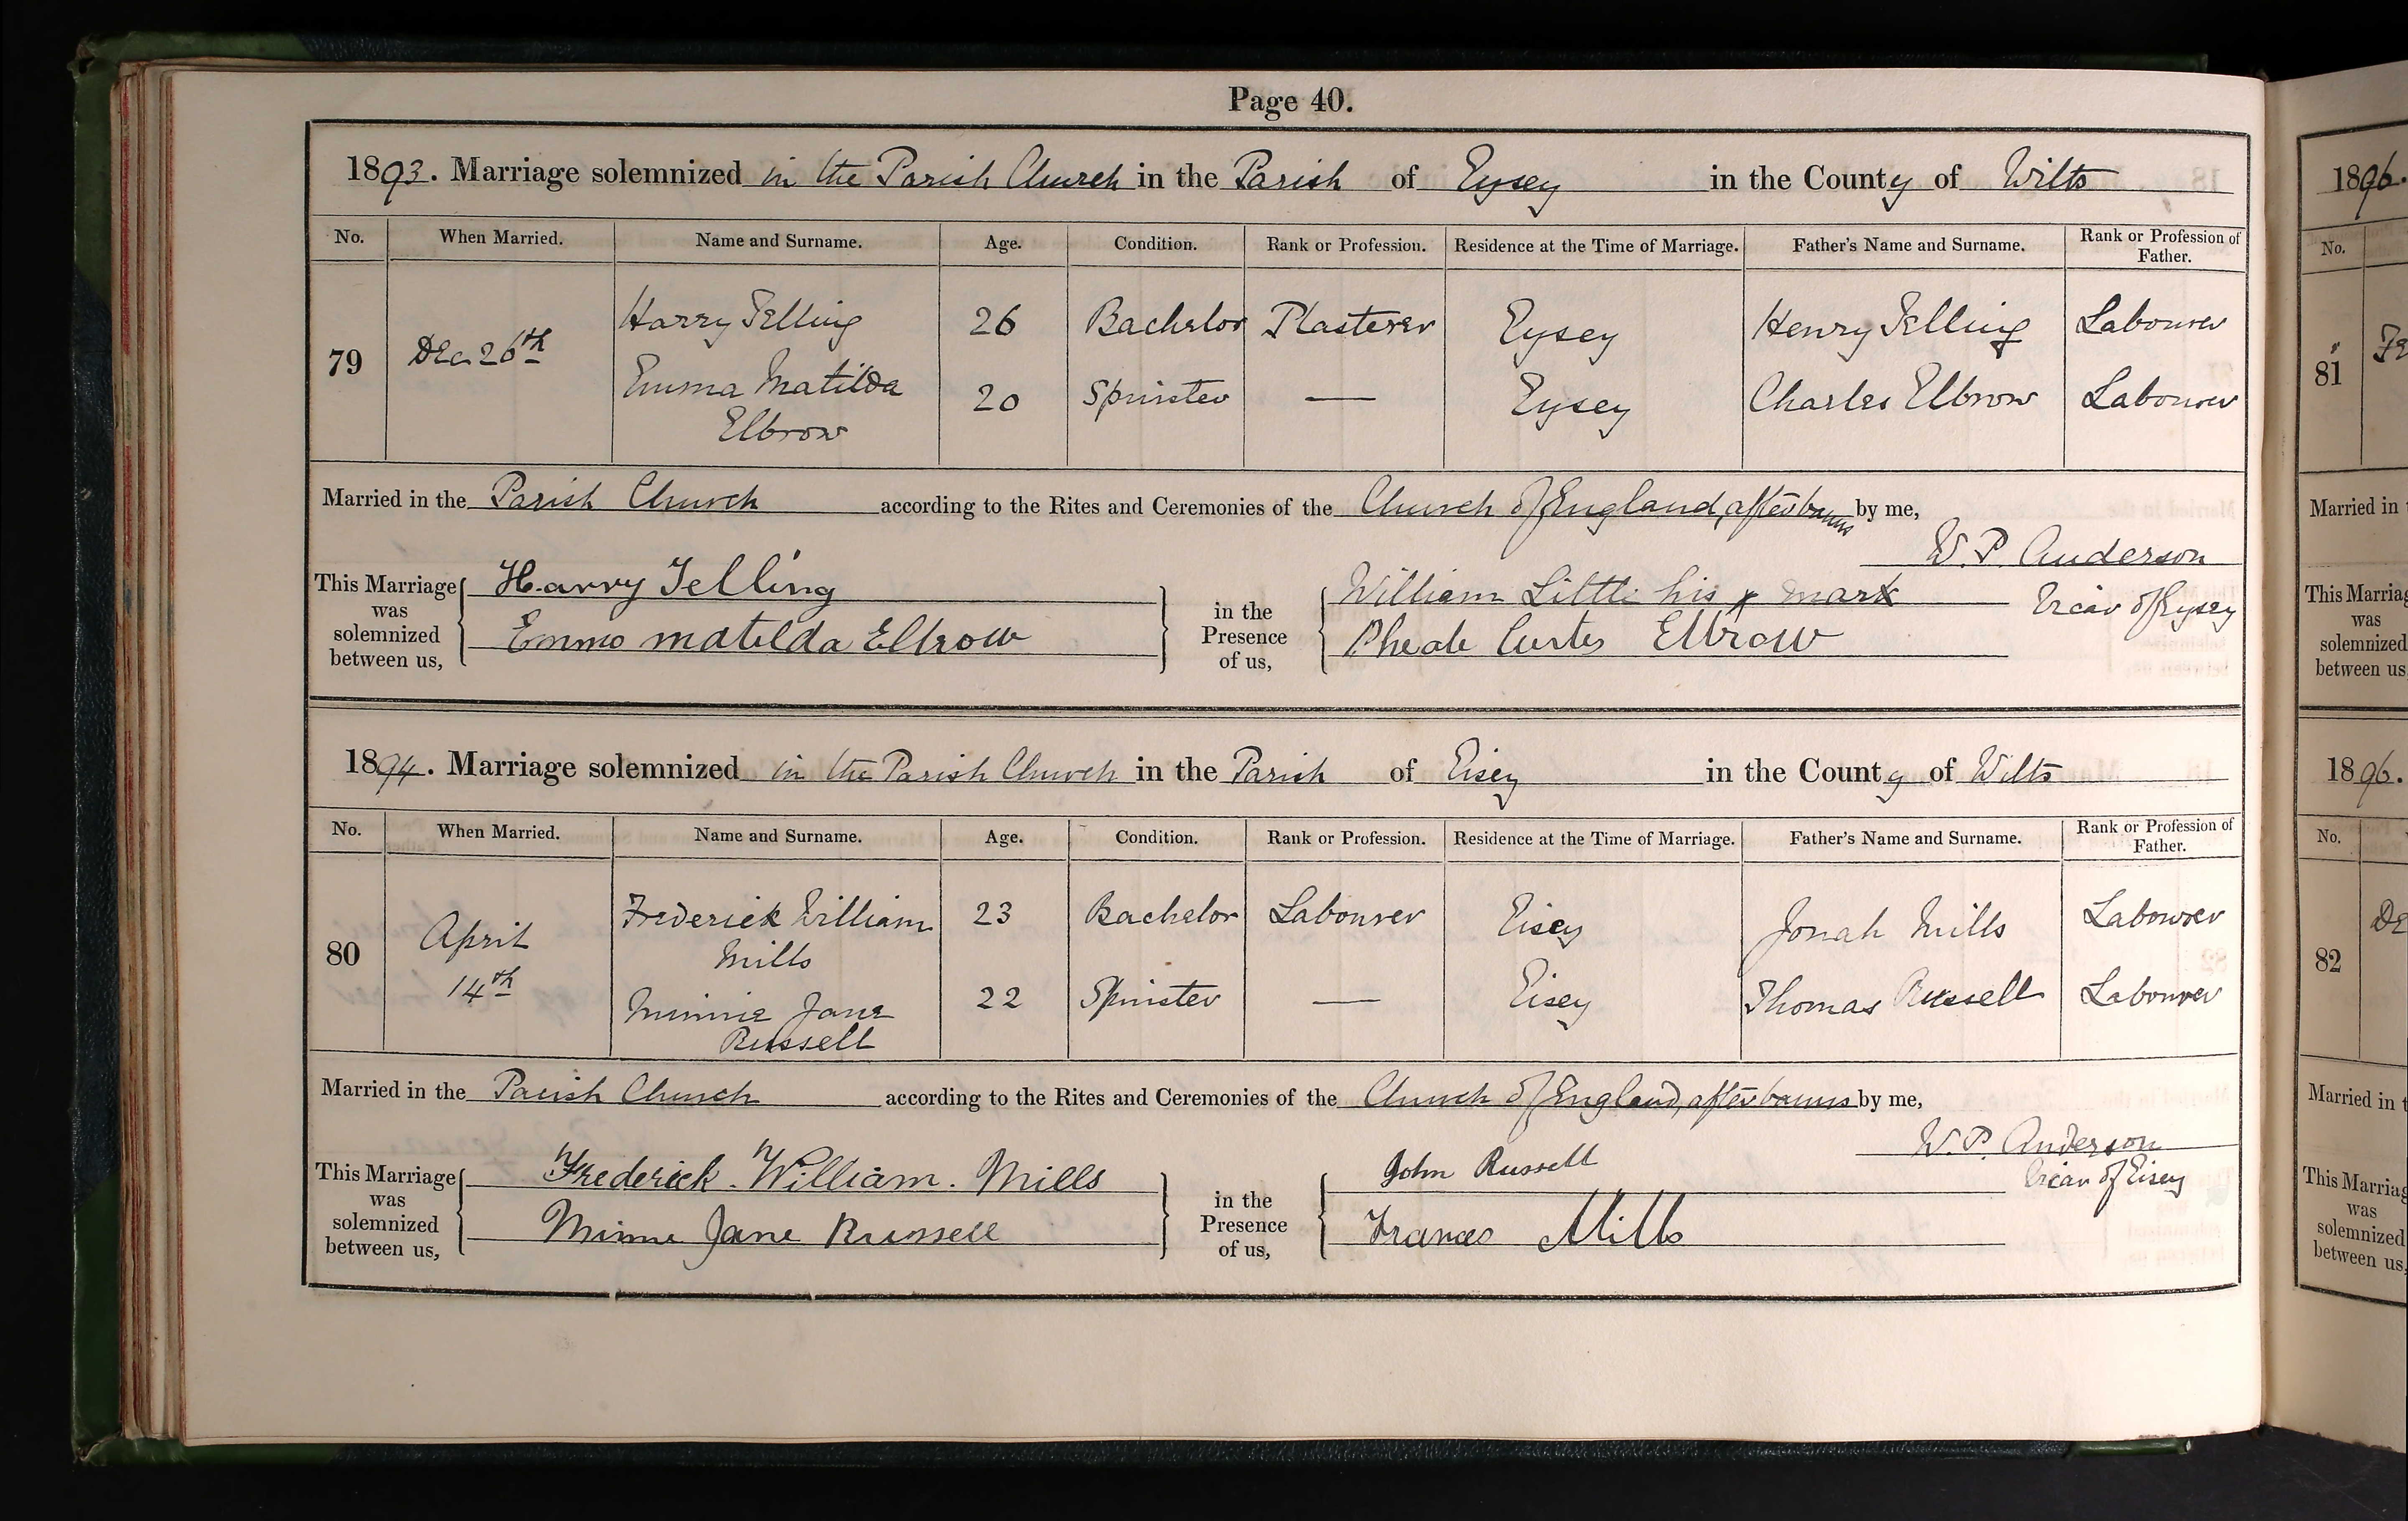 Page 40.
1893. Marriage solemnized in the Parish Church in the Parish of Eysey in the County of Wilts
No. When Married. Name and Surname. Age. Condition. Rank or Profession. Residence at the Time of Marriage. Father's Name and Surname. Rank or Profession of Father.
79 Dec. 26th Harry Telling 26 Bachelor Plasterer Eysey Henry Telling Labourer
Emma Matilda Elbrow 20 Spinster — Eysey Charles Elbrow Labourer
Married in the Parish Church according to the Rites and Ceremonies of the Church of England, after banns by me,
W. P. Anderson
Vicar of Eysey
This Marriage was solemnized between us, Harry Telling
Emma matilda Elbrow
in the Presence of us, William Little his x mark
Curtes Elbrow
1894. Marriage solemnized in the Parish Church in the Parish of Eisey in the County of Wilts
No. When Married. Name and Surname. Age. Condition. Rank or Profession. Residence at the Time of Marriage. Father's Name and Surname. Rank or Profession of Father.
80 April 14th Frederick William Mills 23 Bachelor Labourer Eisey Jonah Mills Labourer
Minnie Jane Russell 22 Spinster — Eisey Thomas Russell Labourer
Married in the Parish Church according to the Rites and Ceremonies of the Church of England, after banns by me,
W. P. Anderson
Vicar of Eisey
This Marriage was solemnized between us, Frederick. William. Mills
Minnie Jane Russell
in the Presence of us, John Russell
Frances Mills
1896.
No.
81
Married in
This Marriag
was
solemnized
between us,
1896.
No.
82 De
Married in t
This Marriag
was
solemnized
between us,